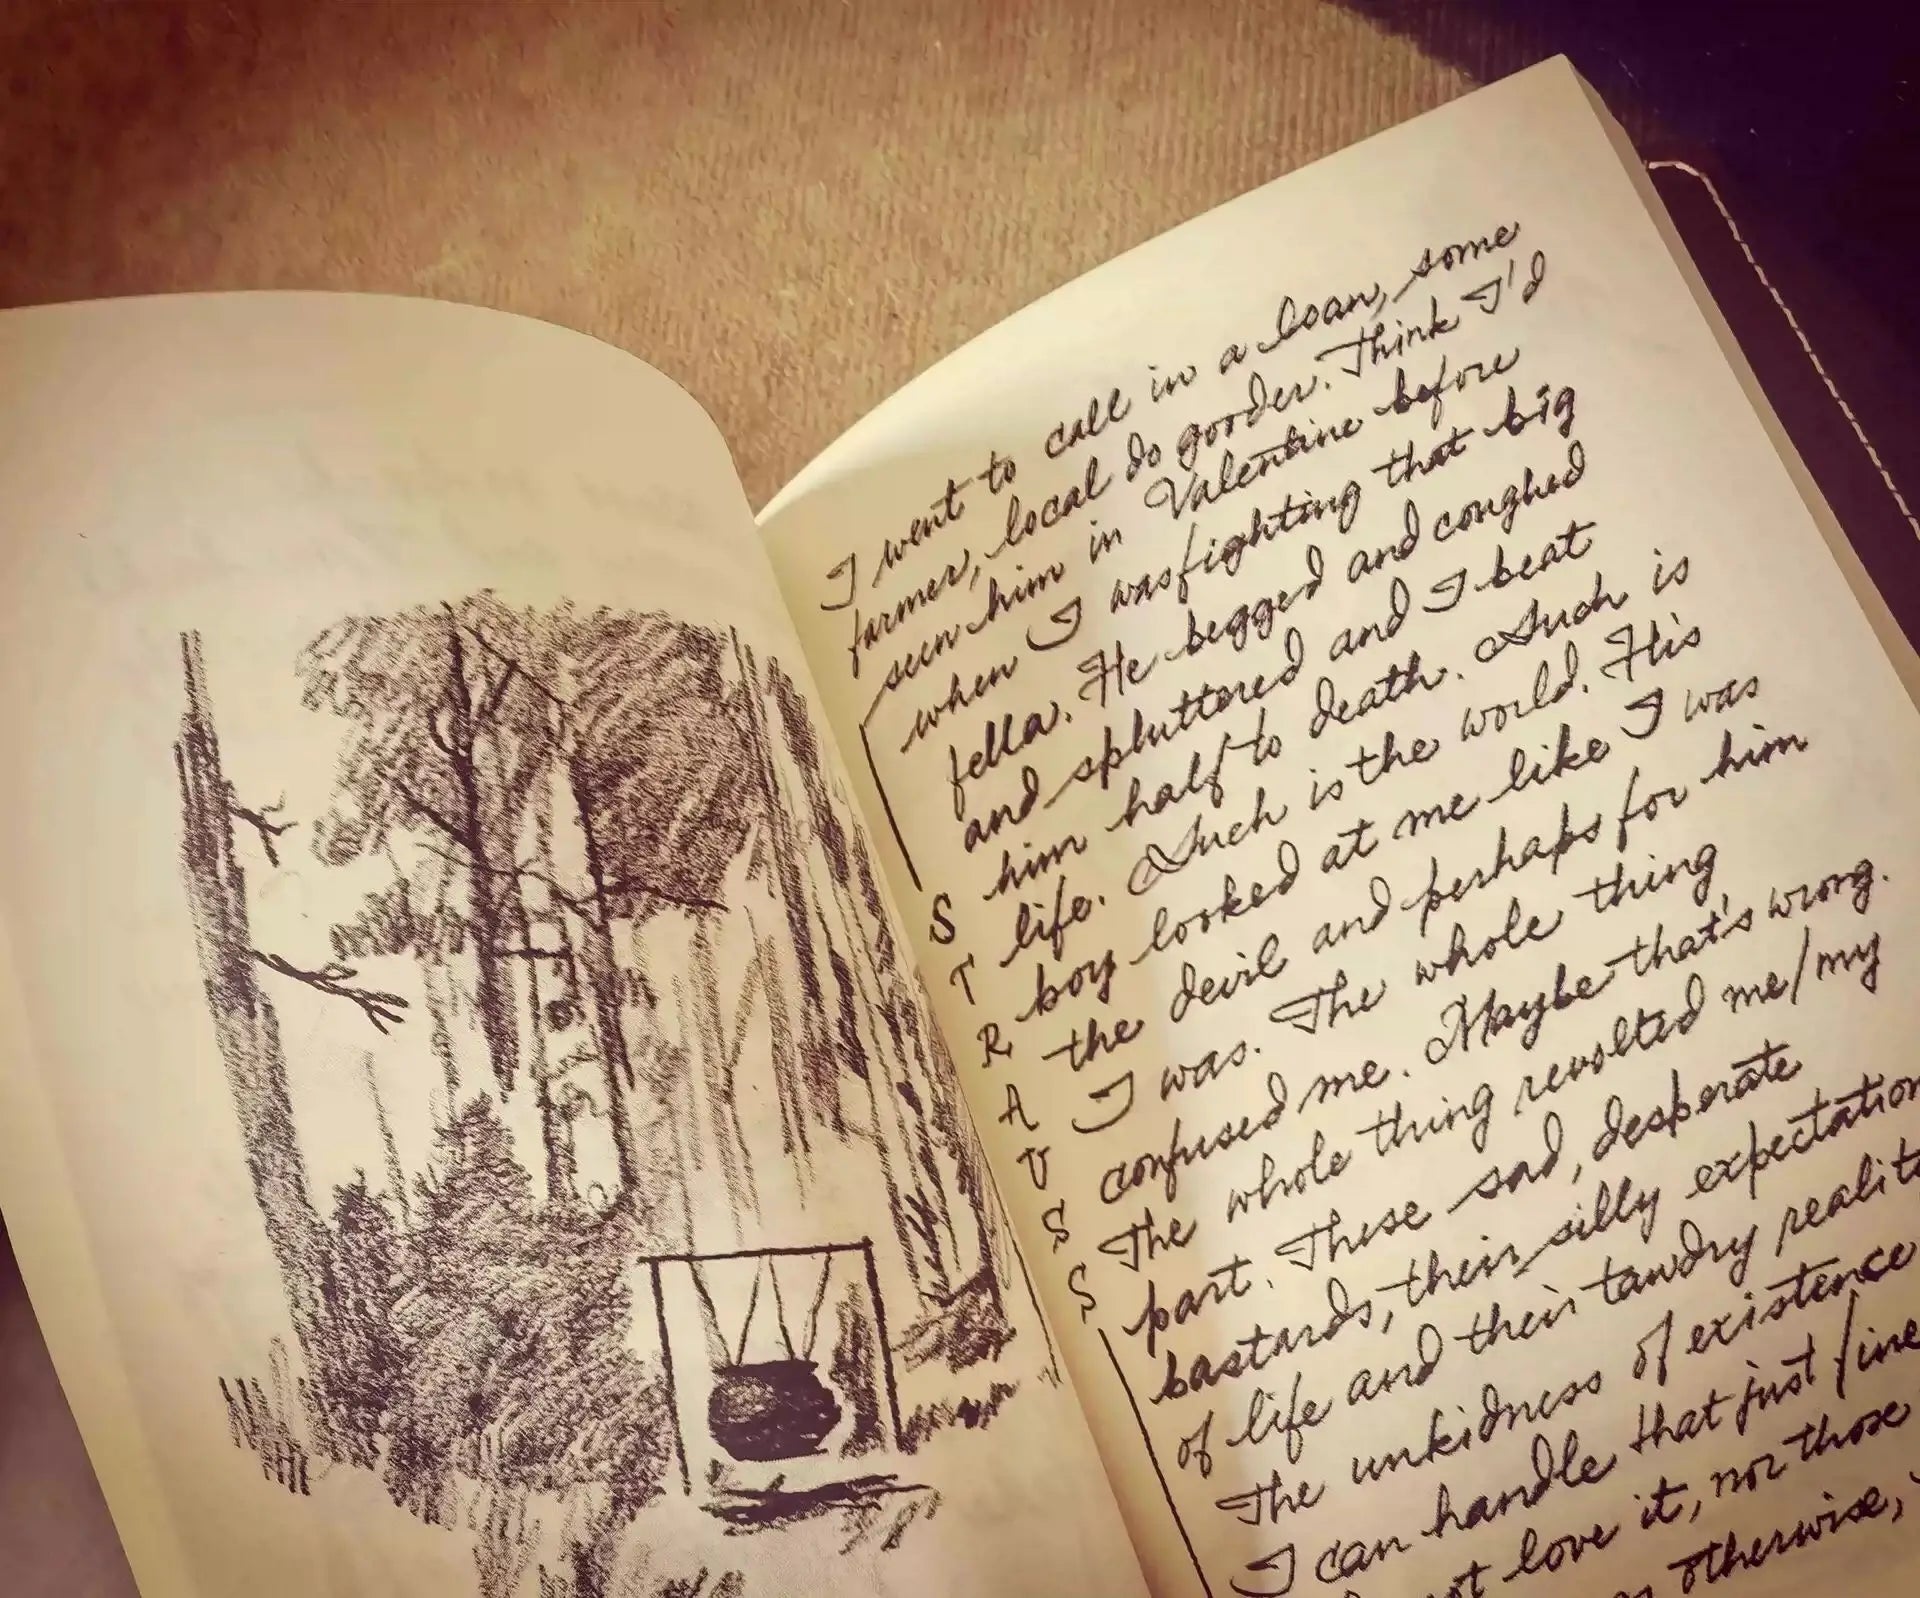 I went to call in a loan, some
farmer, local do gooder. Think I'd
seen him in Valentine before
when I was fighting that big
fella. He begged and coughed
and spluttered and I beat
him half to death. Such is
life. Such is the world. His
boy looked at me like I was
the devil and perhaps for him
I was. The whole thing
confused me. Maybe that's wrong.
The whole thing revolted me/my
part. These sad, desperate
bastards, their silly expectation
of life and their tawdry
The unkidness of existence
I can handle that just fine
not love it, nor those
otherwise,
STRAUSS